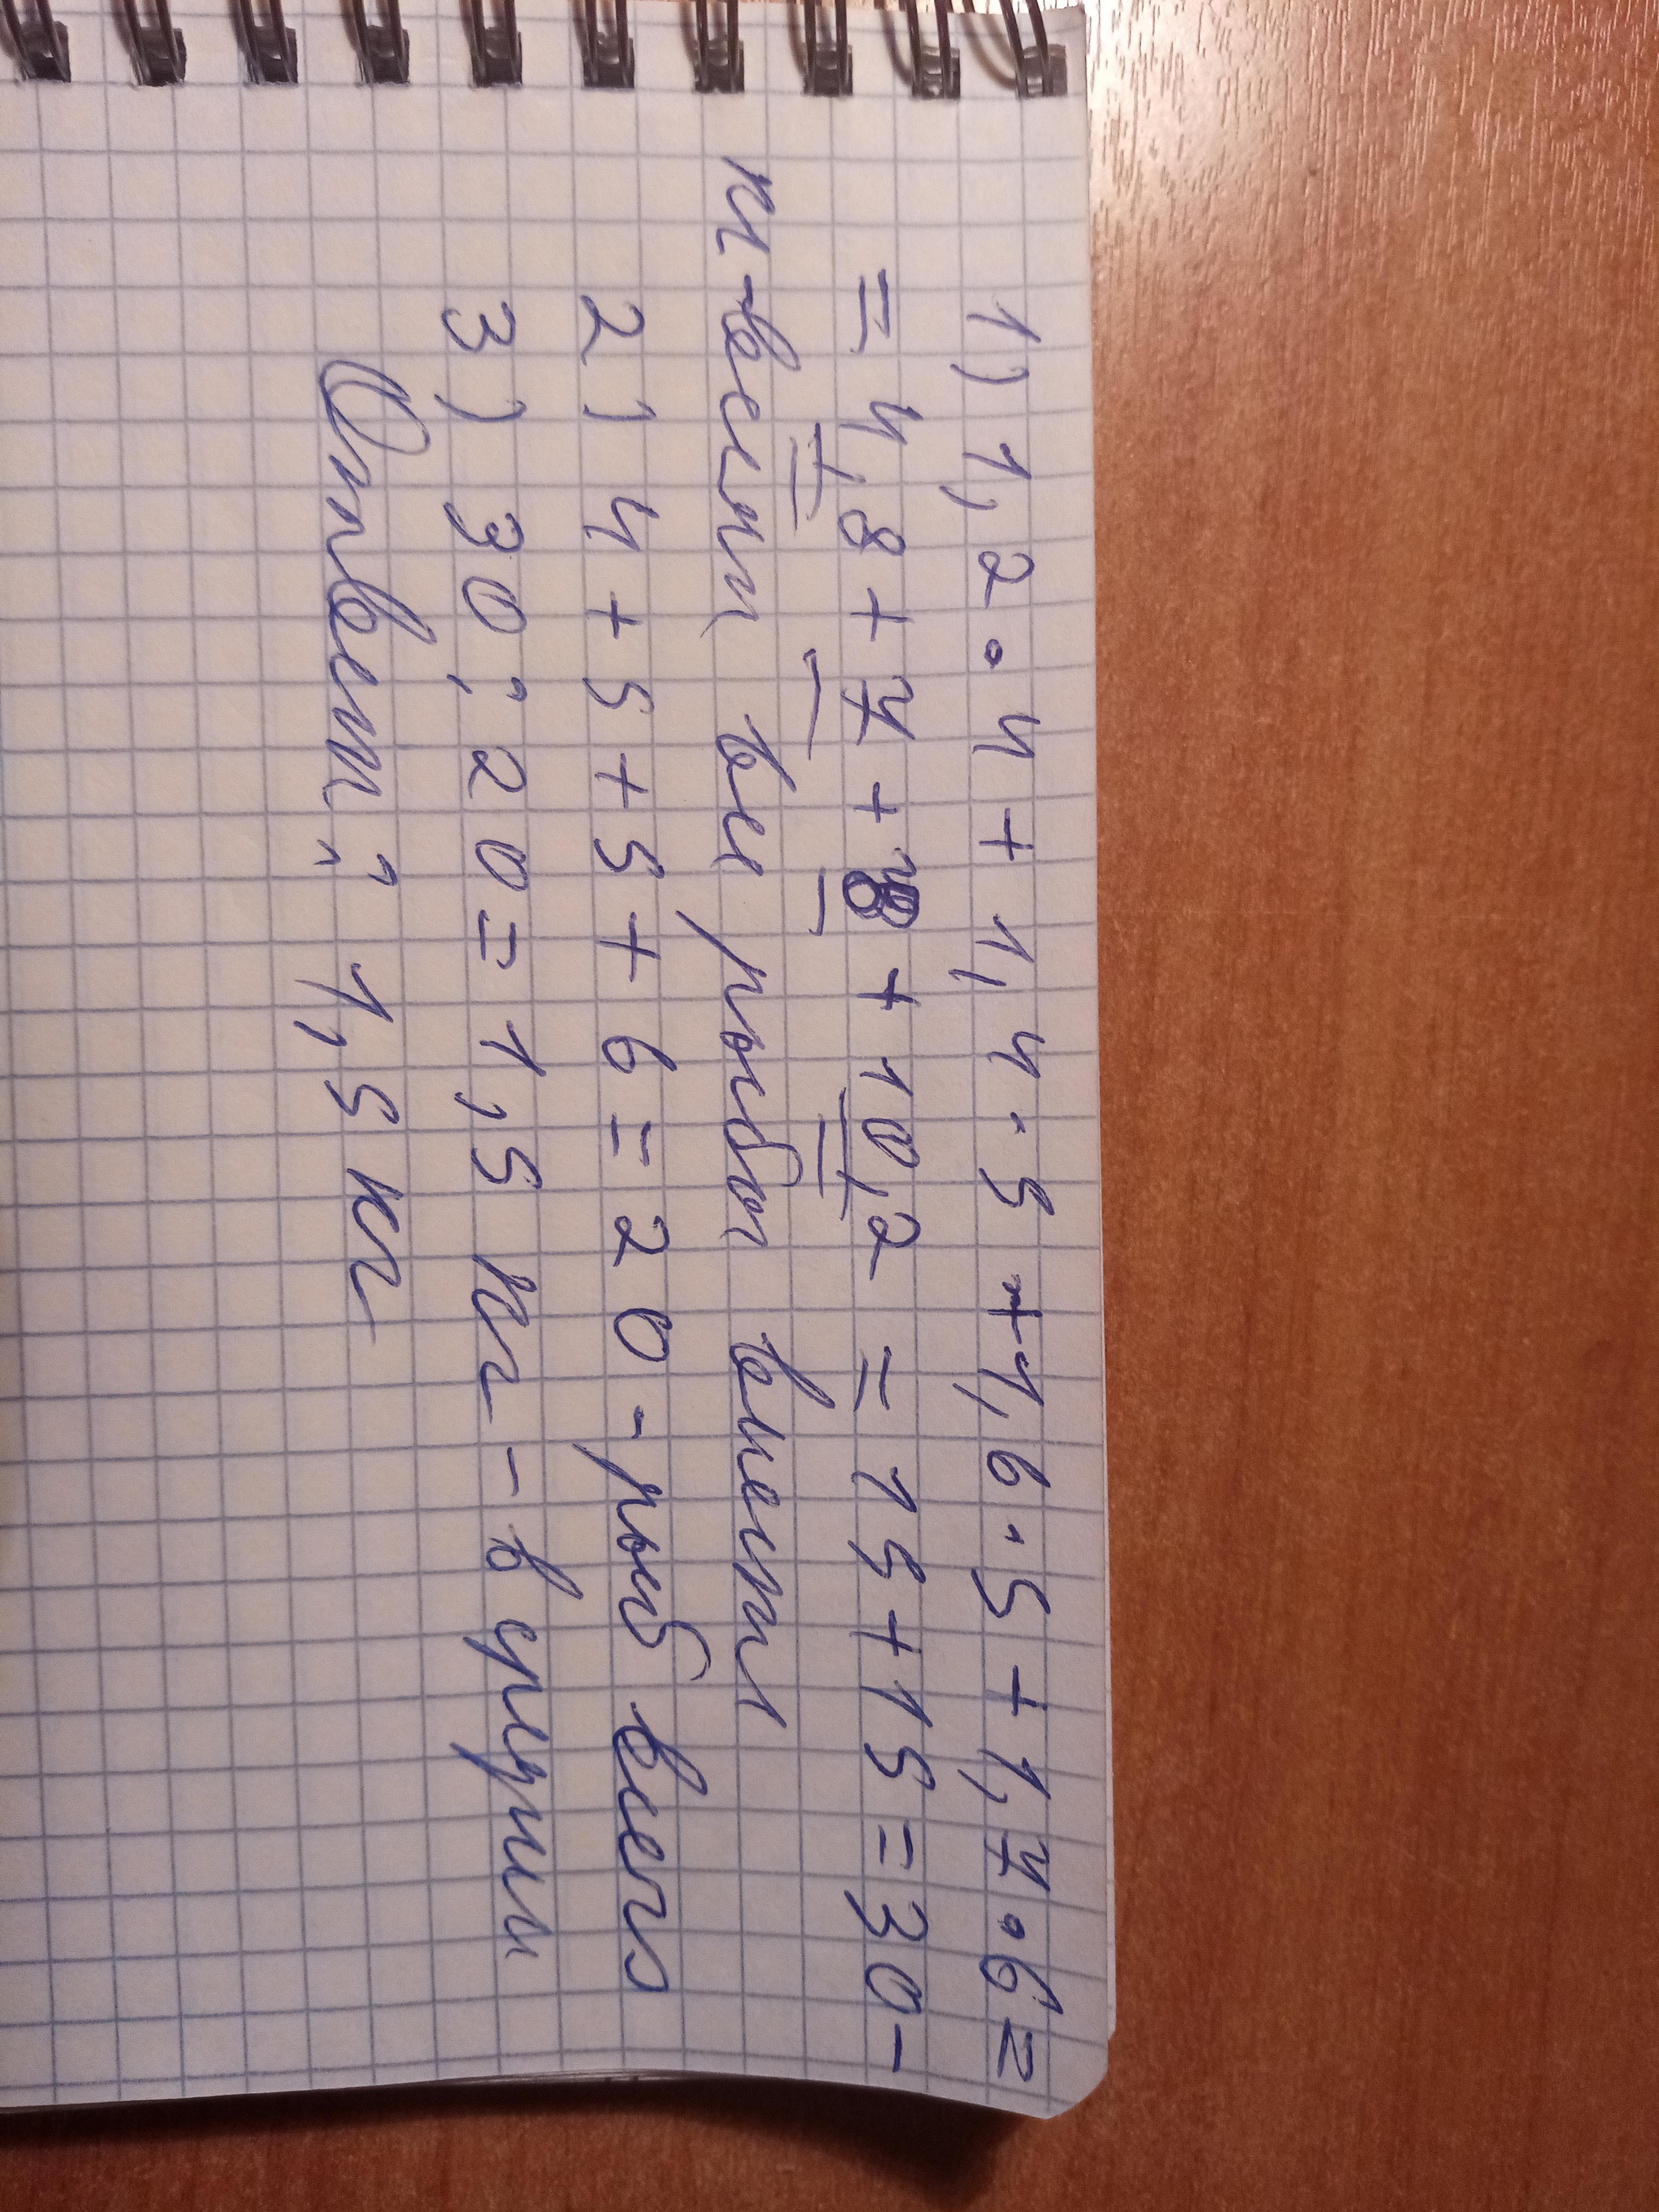 1) 1,2 · 4 + 1,4 · 5 + 1,6 · 5 + 1,7 · 6 =
= 4,8 + 7 + 8 + 10,2 = 15 + 15 = 30 -
кг - весят все рыбы вместе
2) 4 + 5 + 5 + 6 = 20 - рыб всего
3) 30 : 20 = 1,5 кг - в среднем
Ответ: 1,5 кг